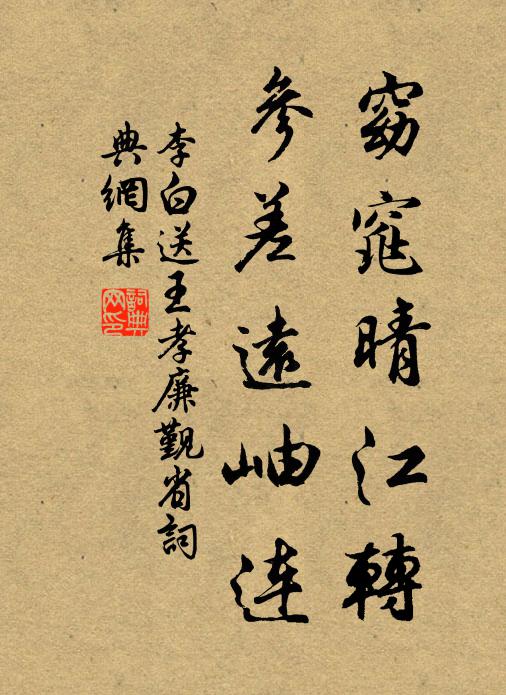 窈窕晴江轉
參差遠岫連
李白送王孝廉觐省詞
典網集
詞典网印